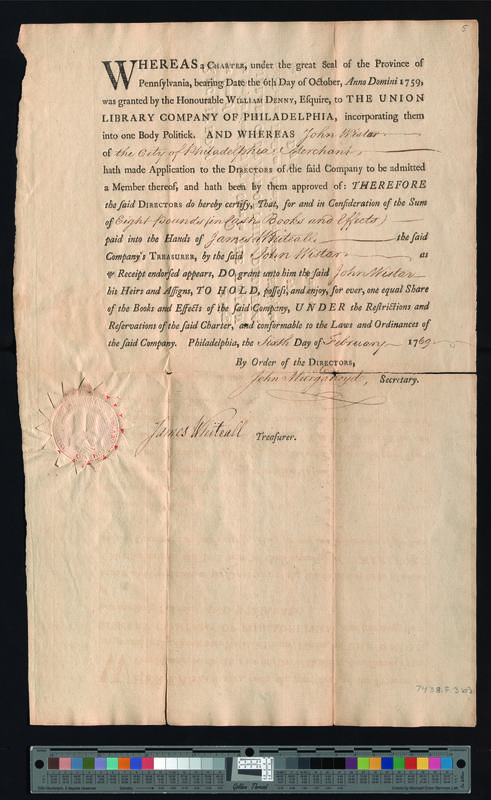 5
WHEREAS a CHARTER, under the great Seal of the Province of
Pennsylvania, bearing Date the 6th Day of October, Anno Domini 1759,
was granted by the Honourable WILLIAM DENNY, Esquire, to THE UNION
LIBRARY COMPANY OF PHILADELPHIA, incorporating them
into one Body Politick. AND WHEREAS John Wistar
of the City of Philadelphia Merchant
hath made Application to the DIRECTORS of the said Company to be admitted
a Member thereof, and hath been by them approved of: THEREFORE
the said DIRECTORS do hereby certify, That, for and in Consideration of the Sum
of Eight Pounds (in Cash Books and Effects)
paid into the Hands of James Whiteall the said
Company's TREASURER, by the said John Wistar as
Receipt endorsed appears, DO grant unto him the said John Wistar
his Heirs and Assigns, TO HOLD, possess, and enjoy, for ever, one equal Share
of the Books and Effects of the said Company, UNDER the Restrictions and
Reservations of the said Charter, and conformable to the Laws and Ordinances of
the said Company. Philadelphia, the Sixth Day of February 1769
By Order of the DIRECTORS,
John Secretary.
James Whiteall Treasurer.
7438.F.3
Golden Thread